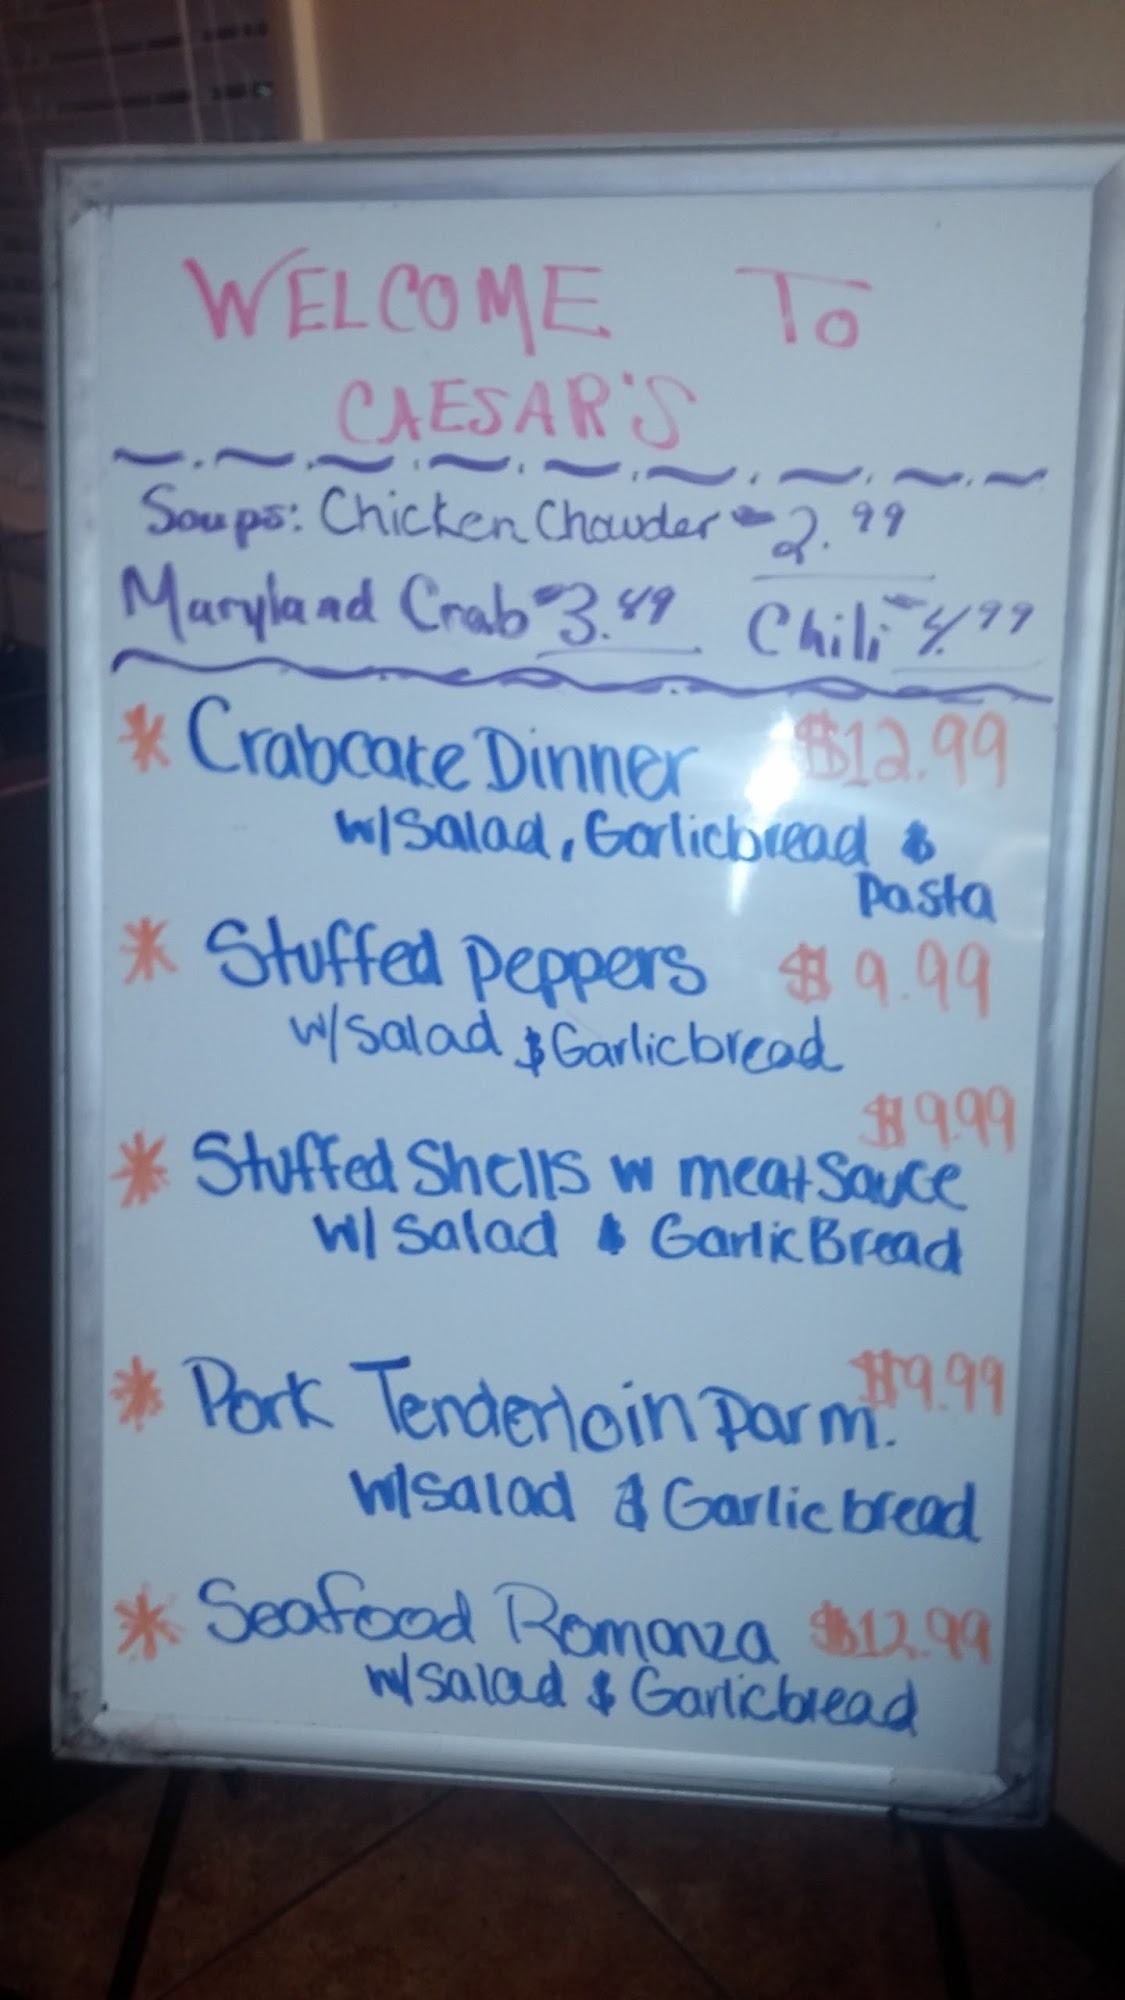 WELCOME TO
CAESAR'S
Soups: Chicken Chowder - 2.99
Maryland Crab - 3.49 Chili - 4.99
* Crabcake Dinner $12.99
w/Salad, Garlicbread &
Pasta
* Stuffed Peppers $9.99
w/Salad & Garlicbread
$9.99
* Stuffed Shells w meat Sauce
w/ Salad & Garlic Bread
* Pork Tenderloin Parm. $9.99
w/salad & Garlic bread
* Seafood Romanza $12.99
w/Salad & Garlicbread